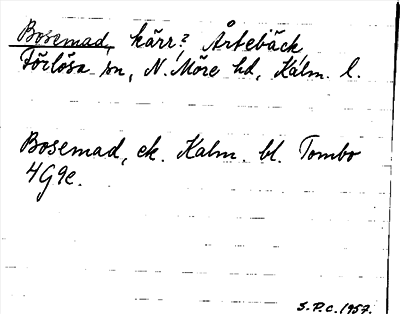 Bosemad, kärr?, Årtebäck
Förlösa sn, N. Möre hd, Kalm. l.
Bosemad, ek. Kalm. bl. Tombo
4G9e.
S.P.C. 1957.